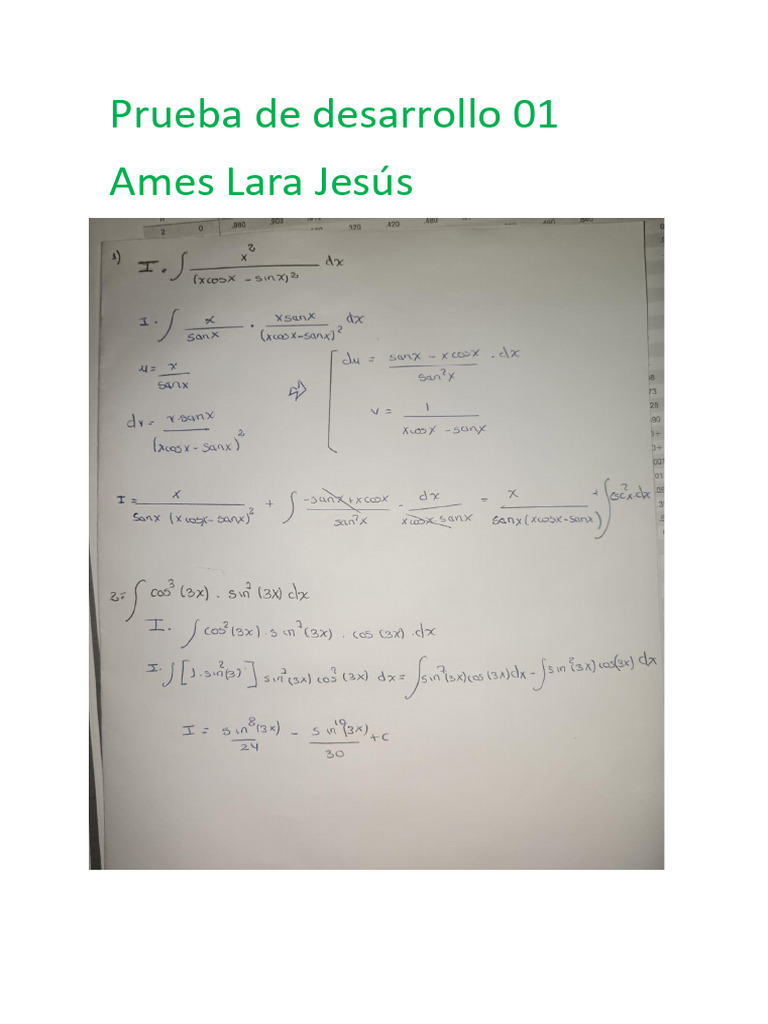 Prueba de desarrollo 01
Ames Lara Jesús
2 0 .980 .903 .320 .420 .480
1) I = ∫ x² / (xcosx - sinx)² dx
I = ∫ x / sanx · xsanx / (xcosx-sanx)² dx
u = x / sanx ⇒ du = sanx - xcosx / san²x · dx
dv = x·sanx / (xcosx - sanx)² v = 1 / xcosx - sanx
I = x / sanx (xcosx-sanx)² + ∫ -sanx+xcosx / san²x - dx / xcosx-sanx = x / sanx(xcosx-sanx) + ∫csc²x dx
2= ∫ cos³(3x) · sin⁷(3x) dx
I. ∫ cos²(3x)·sin⁷(3x) · cos(3x)·dx
I· ∫ [1·sin²(3)] sin⁷(3x) cos²(3x) dx = ∫ sin⁷(3x)cos(3x)dx - ∫ sin⁹(3x)cos(3x) dx
I = sin⁸(3x) / 24 - sin¹⁰(3x) / 30 + c